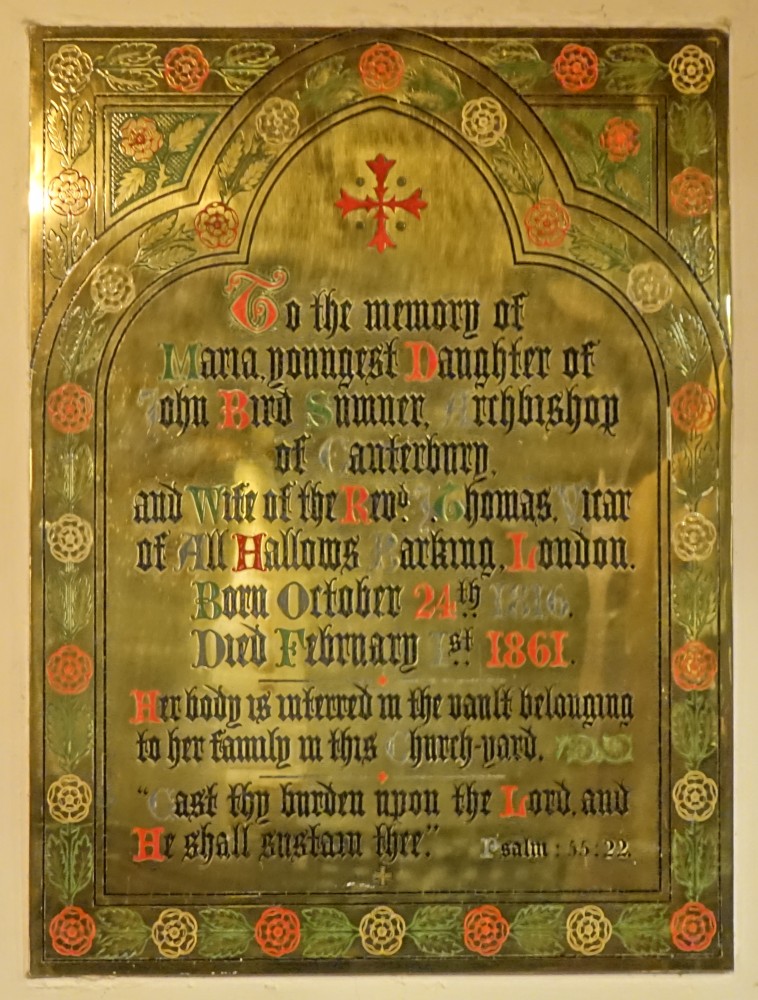 To the memory of
Maria, youngest Daughter of
John Bird Sumner, Archbishop
of Canterbury,
and Wife of the Revd. J. Thomas, Vicar
of All Hallows Barking, London.
Born October 24th. 1816.
Died February 1st. 1861.
Her body is interred in the vault belonging
to her family in this Church-yard.
"Cast thy burden upon the Lord, and
He shall sustain thee." Psalm : 55 : 22.